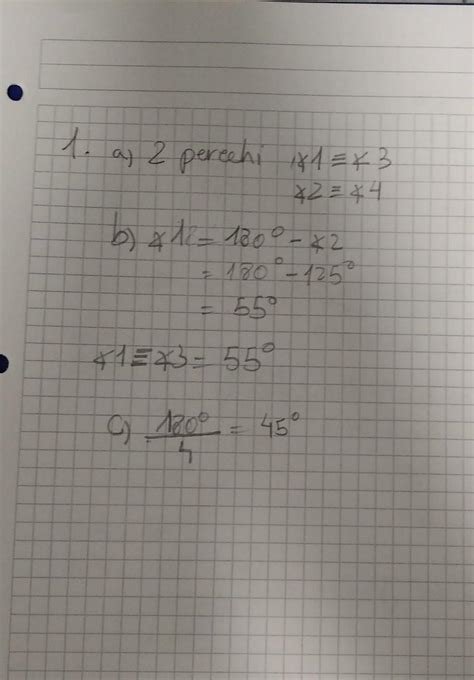 1. a) 2 perechi ∢1 ≡ ∢3
∢2 ≡ ∢4
b) ∢1 = 180° - ∢2
= 180° - 125°
= 55°
∢1 ≡ ∢3 = 55°
c) 180°/4 = 45°